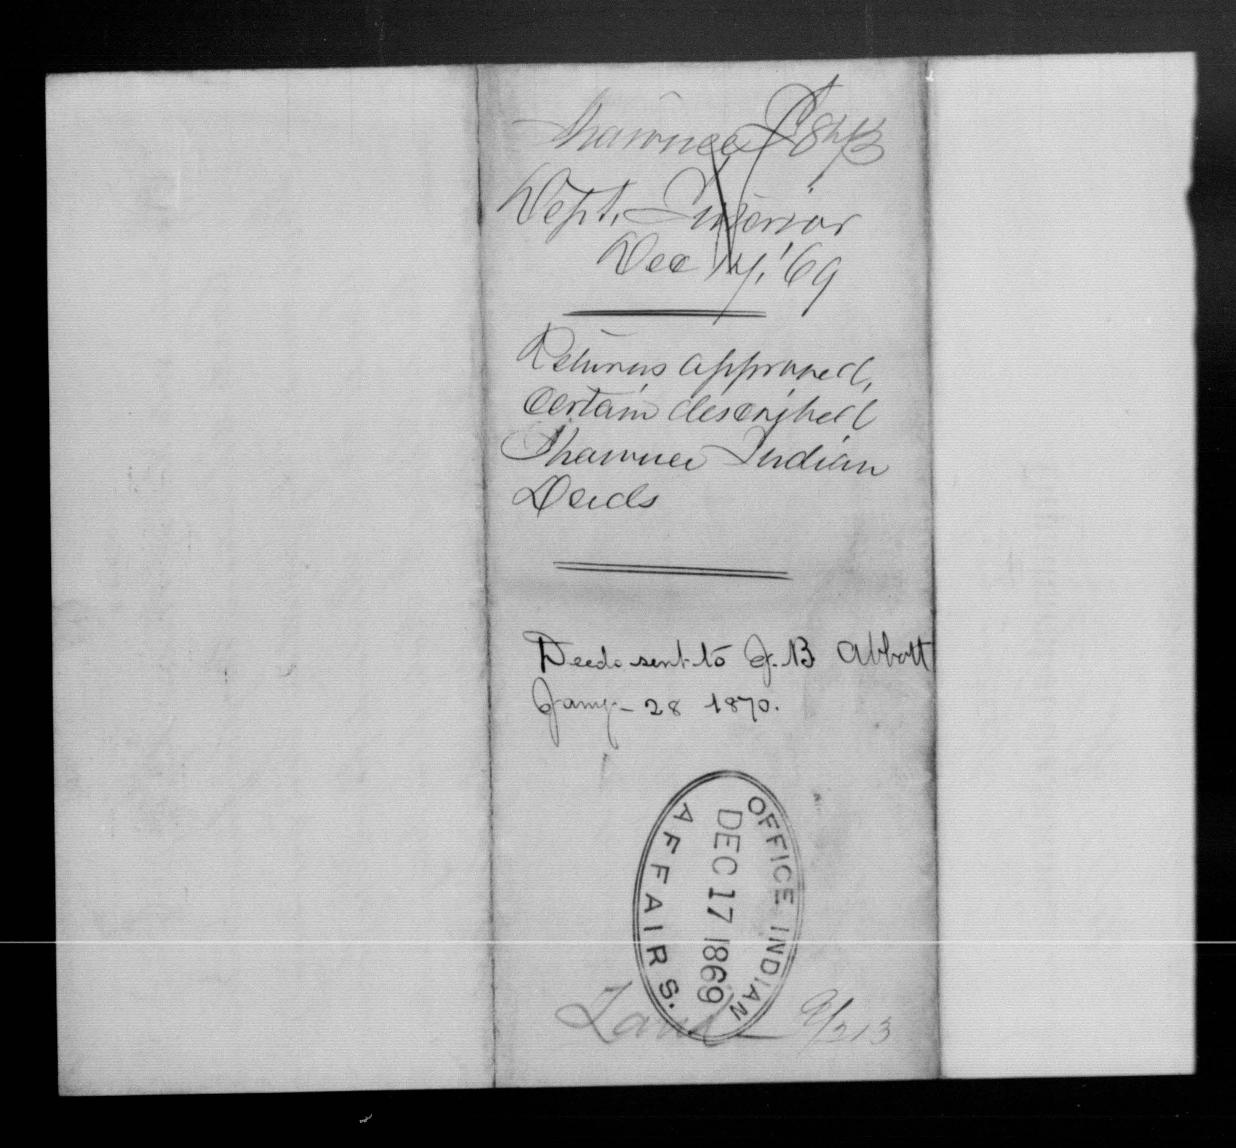 Shawnee
Dept. Interior
Dec 17, '69
Returns approved,
certain described
Shawnee Indian
Deeds
Deeds sent to J. B Abbott
Jany - 28 1870.
OFFICE INDIAN
DEC 17 1869
AFFAIRS.
Land - 9/213